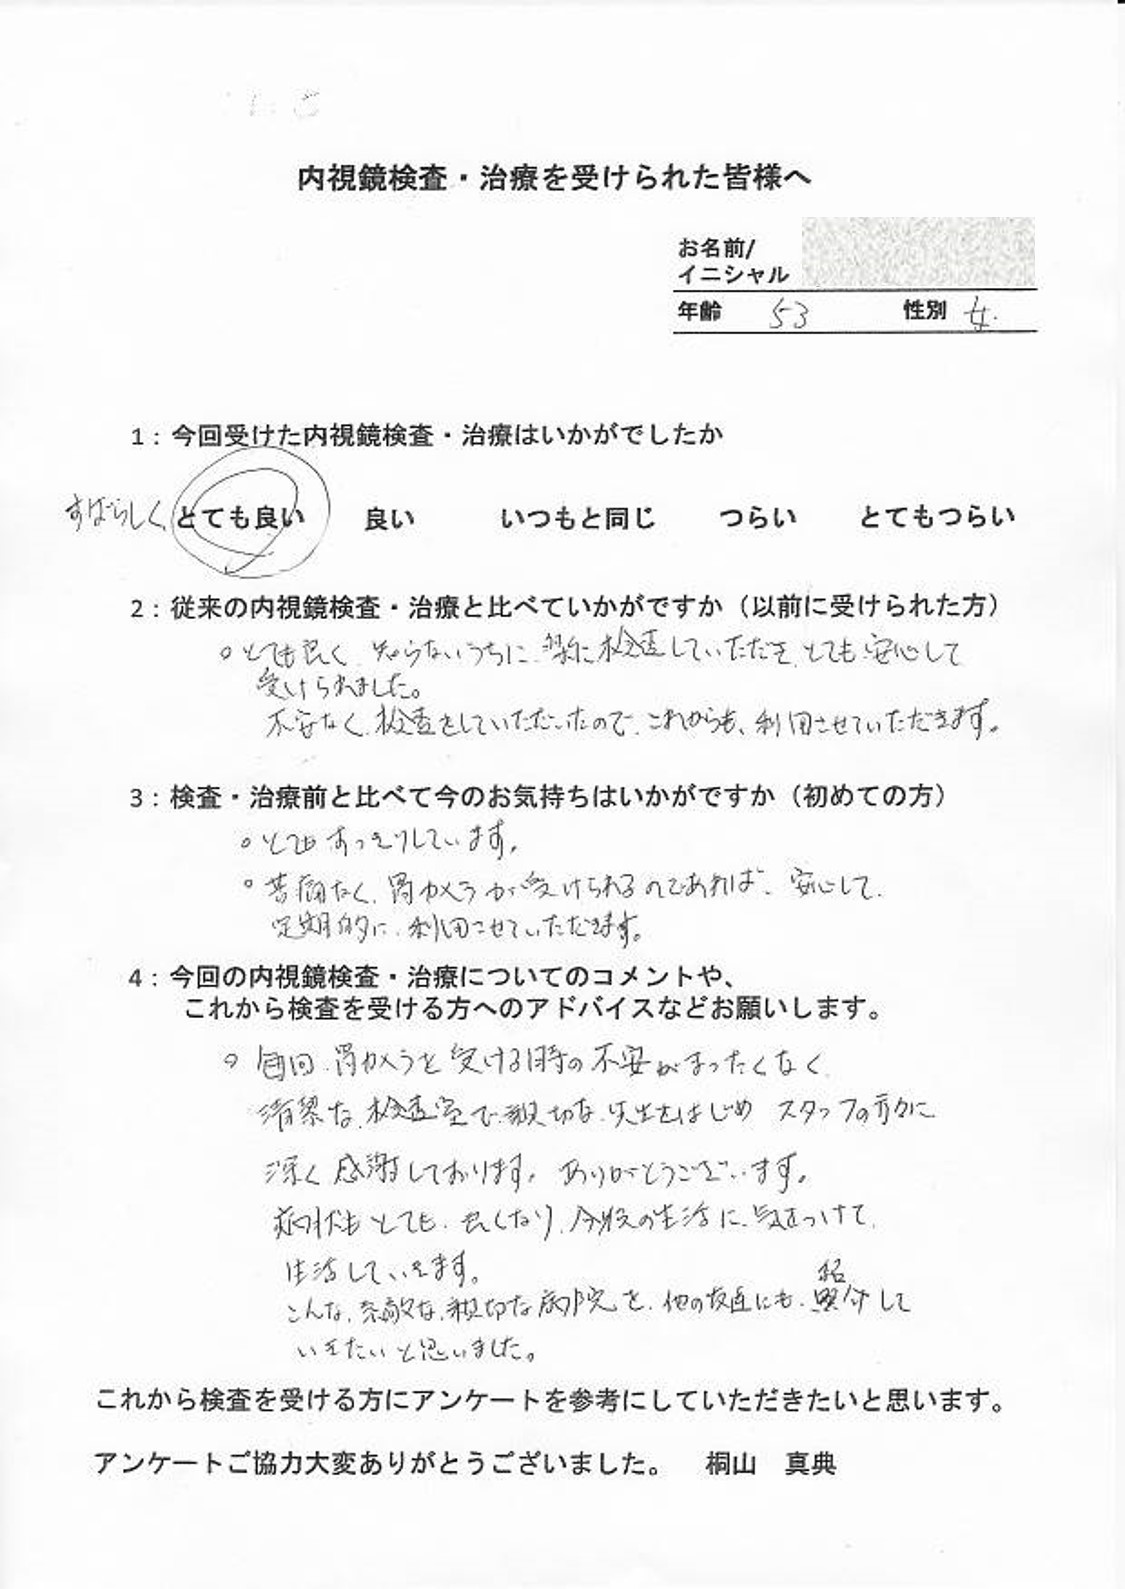 内視鏡検査・治療を受けられた皆様へ
お名前/
イニシャル
年齢 53 性別 女.
1：今回受けた内視鏡検査・治療はいかがでしたか
すばらしく、とても良い 良い いつもと同じ つらい とてもつらい
2：従来の内視鏡検査・治療と比べていかがですか（以前に受けられた方）
。とても良く、知らないうちに、楽に検査していただき、とても安心して
受けられました。
不安なく、検査をしていただいたので、これからも、利用させていただきます。
3：検査・治療前と比べて今のお気持ちはいかがですか（初めての方）
。とてもすっきりしています。
。苦痛なく、胃カメラが受けられるのであれば、安心して、
定期的に、利用させていただきます。
4：今回の内視鏡検査・治療についてのコメントや、
これから検査を受ける方へのアドバイスなどお願いします。
。毎回、胃カメラを受ける時の不安がまったくなく、
清潔な、検査室で、親切な、先生をはじめ スタッフの方々に
深く感謝しております。ありがとうございます。
症状もとても、良くなり、今後の生活に、気をつけて、
生活していきます。
こんな、素敵な、親切な病院を、他の友達にも、紹介して
いきたいと思いました。
これから検査を受ける方にアンケートを参考にしていただきたいと思います。
アンケートご協力大変ありがとうございました。 桐山 真典